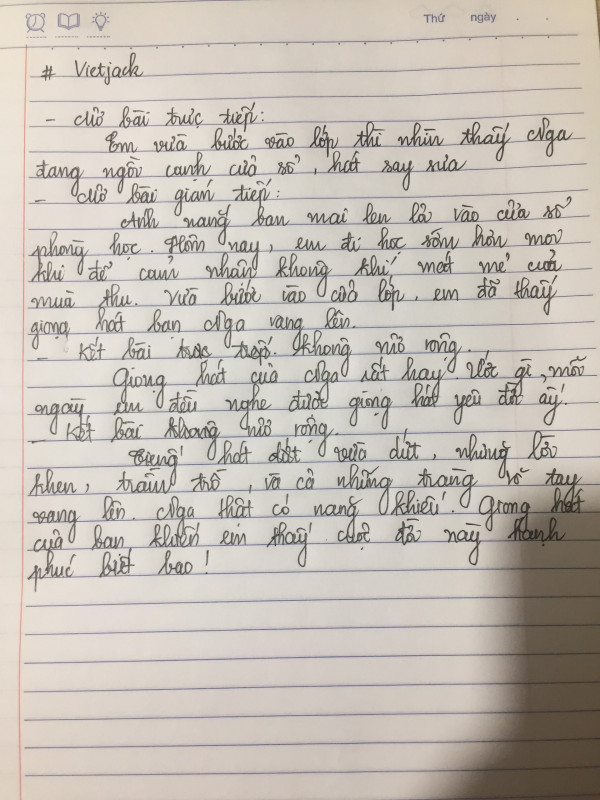 Thứ ngày . .
# Vietjack
- Mở bài trực tiếp:
Em vừa bước vào lớp thì nhìn thấy Nga
đang ngồi cạnh cửa sổ, hát say sưa
- Mở bài gián tiếp:
Ánh nắng ban mai len lỏi vào cửa sổ
phòng học. Hôm nay, em đi học sớm hơn mọi
khi để cảm nhận không khí mát mẻ của
mùa thu. Vừa bước vào cửa lớp, em đã thấy
giọng hát bạn Nga vang lên.
- Kết bài trực tiếp. Không mở rộng.
Giọng hát của Nga rất hay. Ước gì, mỗi
ngày em đều nghe được giọng hát yêu đời ấy.
- Kết bài không mở rộng.
Tiếng hát dứt vừa dứt, những lời
khen, trầm trồ, và cả những tràng vỗ tay
vang lên. Nga thật có năng khiếu. Giọng hát
của bạn khiến em thấy cuộc đời này hạnh
phúc biết bao!